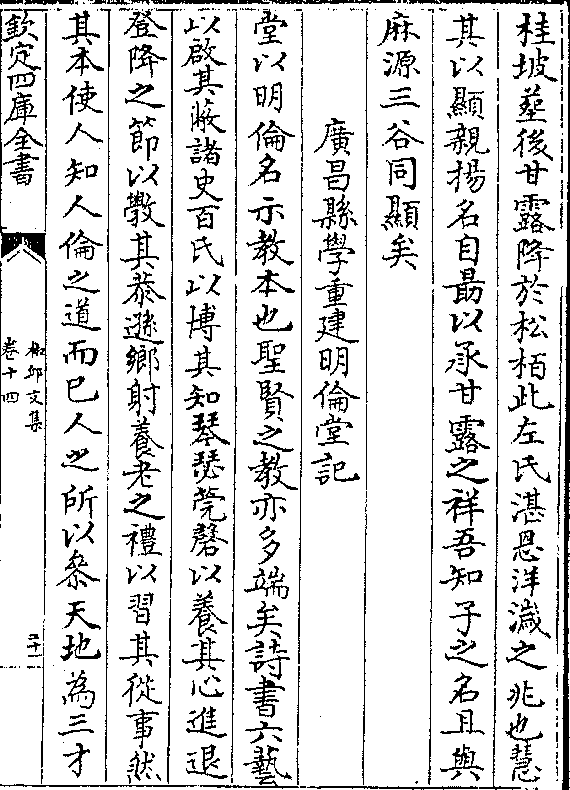 桂坡塟後甘露降於松栢此左氏湛恩洋濊之兆也慧
其以顯親揚名自朂以承甘露之祥吾知子之名且與
麻源三谷同顯矣
廣昌縣學重建明倫堂記
堂以明倫名示教本也聖賢之教亦多端矣詩書六藝
以啟其蔽諸史百氏以博其知琴瑟筦磬以養其心進退
登降之節以敎其恭遜鄉射養老之禮以習其從事然
其本使人知人倫之道而已人之所以叅天地為三才
欽定四庫全書
椒邱文集
卷十四
二十一